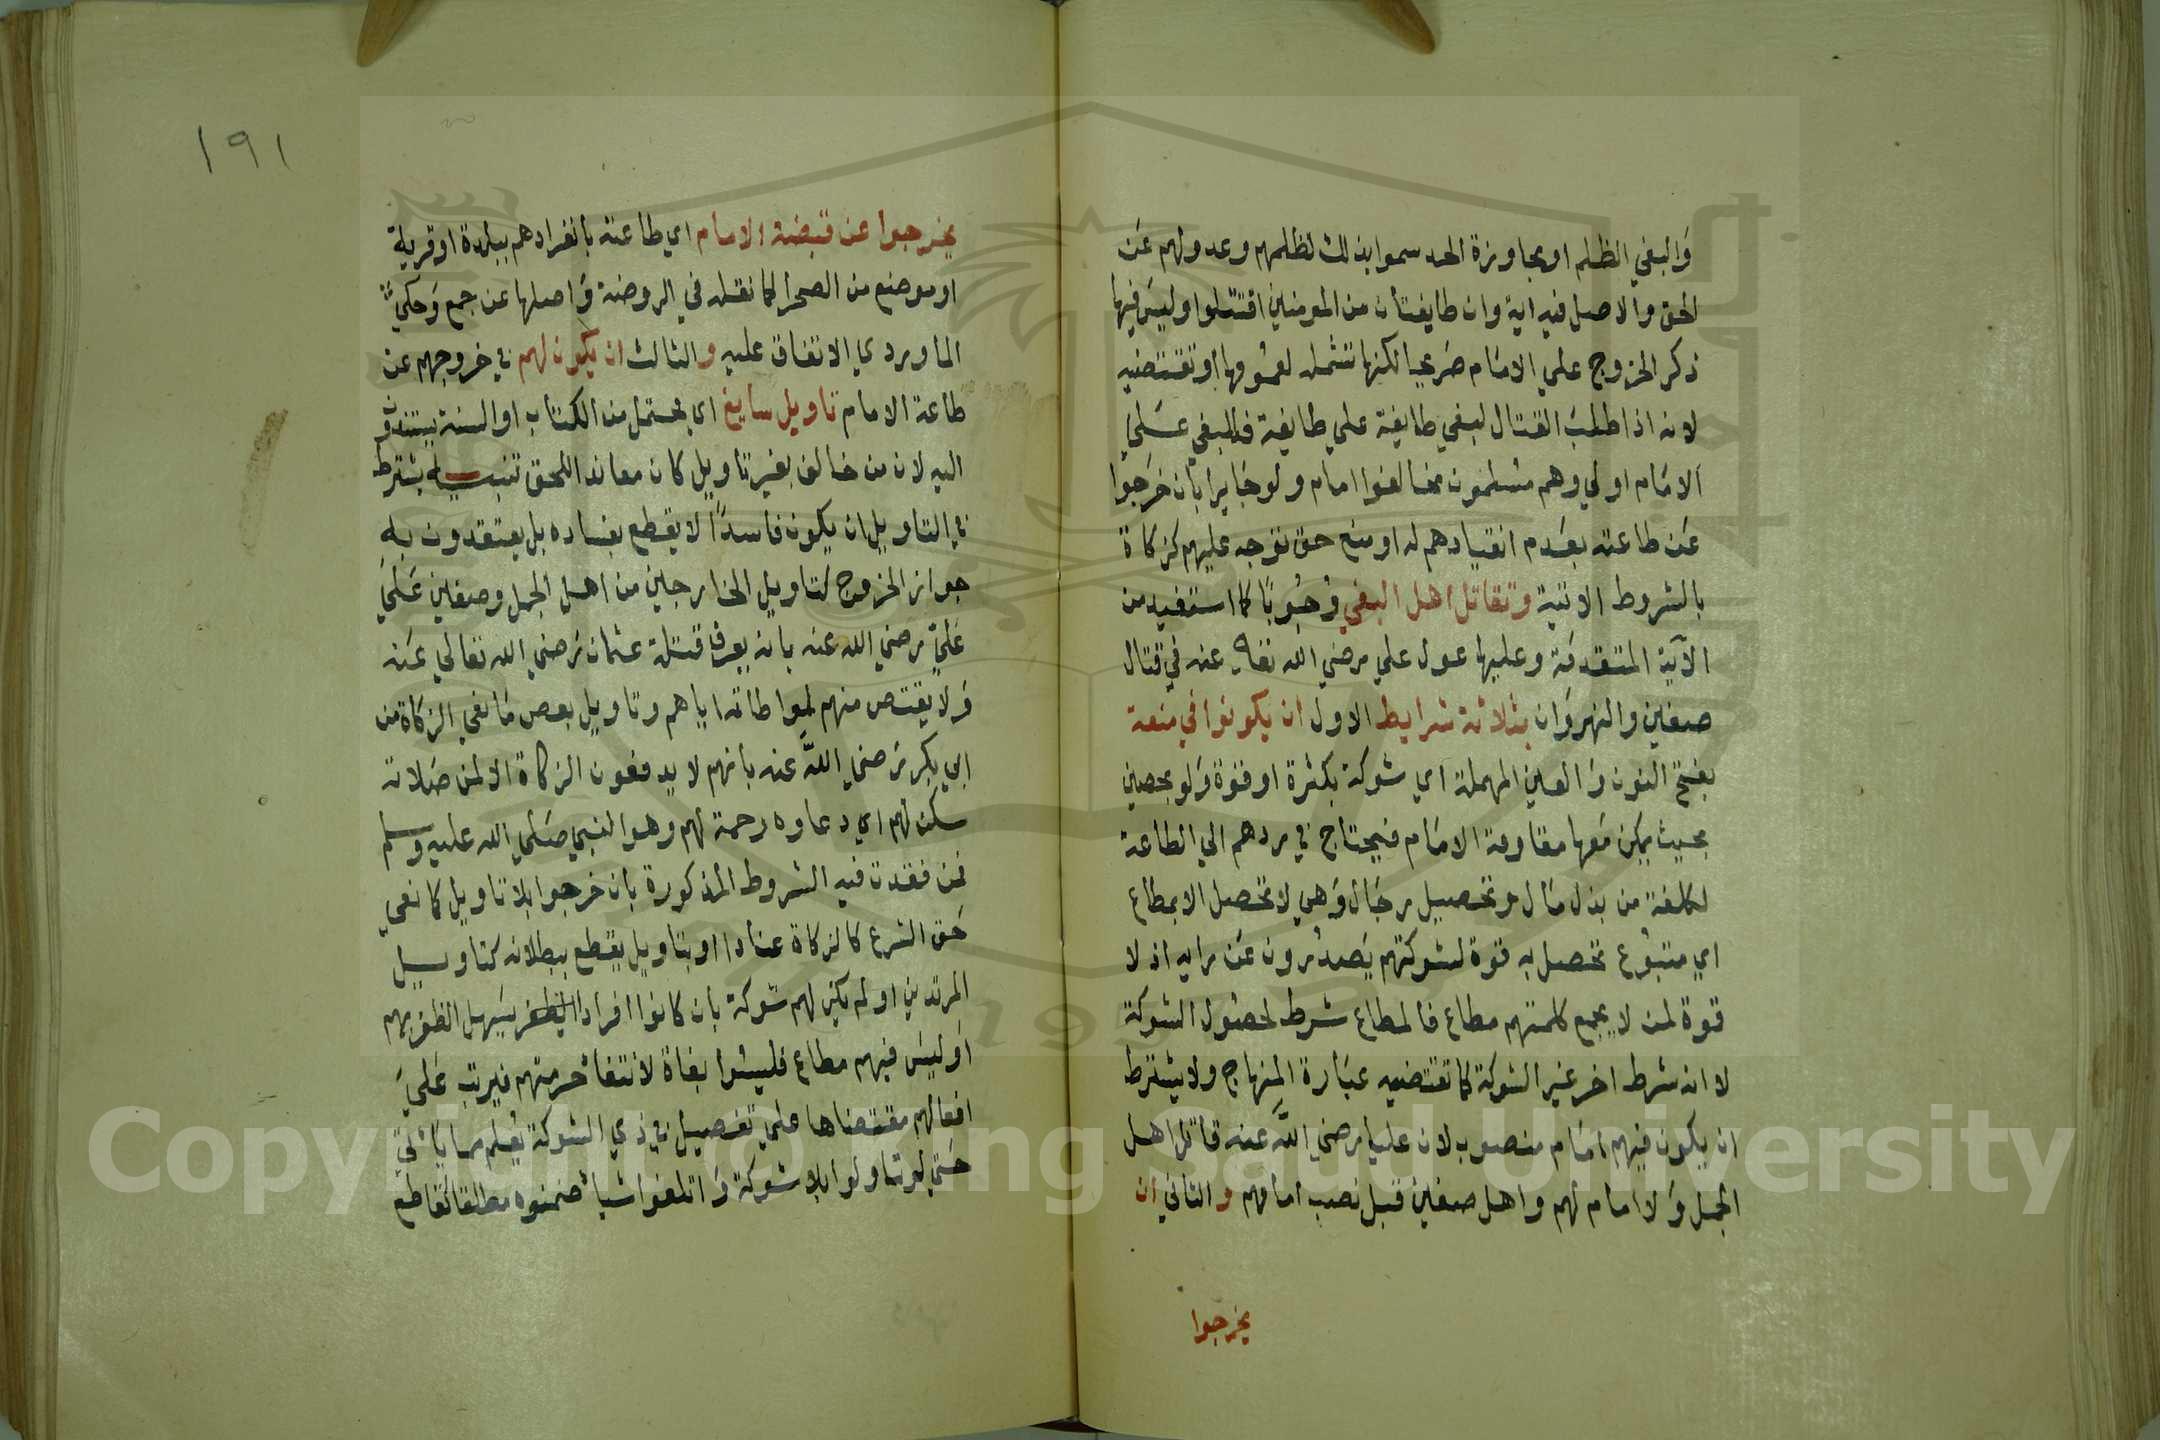 وَالبغي الظلم او مجاوزة الحد سموا بذلك لظلمهم وعدولهم عَن
الحق والاصل فيه اية وان طايفتان من المومنين اقتتلوا وليس فيها
ذكر الخروج علي الامَام صَريحا لكنها تشمله لعمُومها او تقتضيه
لانه اذا طلبَ القتال لبغي طايفة علي طايفة فللبغي عَلي
الامَام اولي وهم مسْلمون مخالفوا امام ولو جَايرا بان خرَجوا
عَن طاعته بعَدم انقيادهم له او منع حق توجه عليهم كزكاة
بالشروط الاتية وتقاتل اهل البغي وُجُوبًا كما استفيد من
الآية المتقدمَة وعليها عول علي رضي الله تعالي عنه في قتال
صفين والنهروَان بثلاثة شرايط الاول ان يكونوا في منعة
بفتح النون وَالعين المهملة اي شوكة بكثرة او قوة وَلو بحصن
بحيث يمكن مَعها مقاومة الامَام فيحتاج في ردهم الي الطاعة
لكلفة من بذل مَال وتحصيل رجَال وَهي لا تحصل الا بمطاع
اي متبُوع تحصل به قوة لشوكتهم يَصدرُون عَن رايه اذ لا
قوة لمن لا يجمع كلمتهم مطاع فالمطاع شرط لحصُول الشوكة
لا انه شرط اخر غير الشوكة كما تقتضيه عبَارة المِنهاج ولا يشترط
ان يكون فيهم امَام منصوب لان عليا رضي اللَّه عنه قاتل اهل
الجمل وَلا امام لهم واهل صفين قبل نصب امامهم والثاني ان
يخرجوا
١٩١
يخرجوا عن قبضة الامام اي طاعته بانفرادهم ببلدة او قرية
او موضع من الصحرا كما نقله في الروضة وَاصلها عن جمع وَحكي
الماوردي الاتفاق عليه والثالث ان يكون لهم في خروجهم عن
طاعة الامام تاويل سايغ اي محتمل من الكتاب او السنة يستندون
اليه لان من خالف بغير تاويل كان معاندا للحق تنبيه يشترط
في التاويل ان يكون فاسدًا لا يقطع بفساده بل يعتقدون به
جواز الخروج كتاويل الخارجين من اهل الجمل وصفين عَلَي
عَليّ رضي الله عنه بانه يعرف قتلة عثمان رَضي الله تعالي عَنه
وَلا يقتص منهم لموَاطاته اياهم وتاويل بعض مَانعي الزكَاة من
ابي بكر رَضي اللَّه عنه بانهم لا يدفعون الزكاة الا لمن صَلاته
سكن لهم اي دعاوه رحمة لهم وهو النبي صَلي الله عليه وسلم
فمن فقدت فيه الشروط المذكورة بان خرجوا بلا تاويل كمانعي
حَق الشرع كالزكاة عنادا او بتاويل يقطع ببطلانه كتاويل
المرتدين او لم يكن لهم شوكة بان كانوا افرادا يسَهل الظفر بهم
اَو ليسَ فيهم مطاع فليسُوا بغاة لانتفا حرمتهم فيرتب عَلَي
افعالهم مقتضاها علي تفصيل في ذي الشوكة يعُلم مما ياتي
حَتي لو تاولوا بلا شوكة وَاتلفوا شيا ضمنوه مطلقا كقاطع